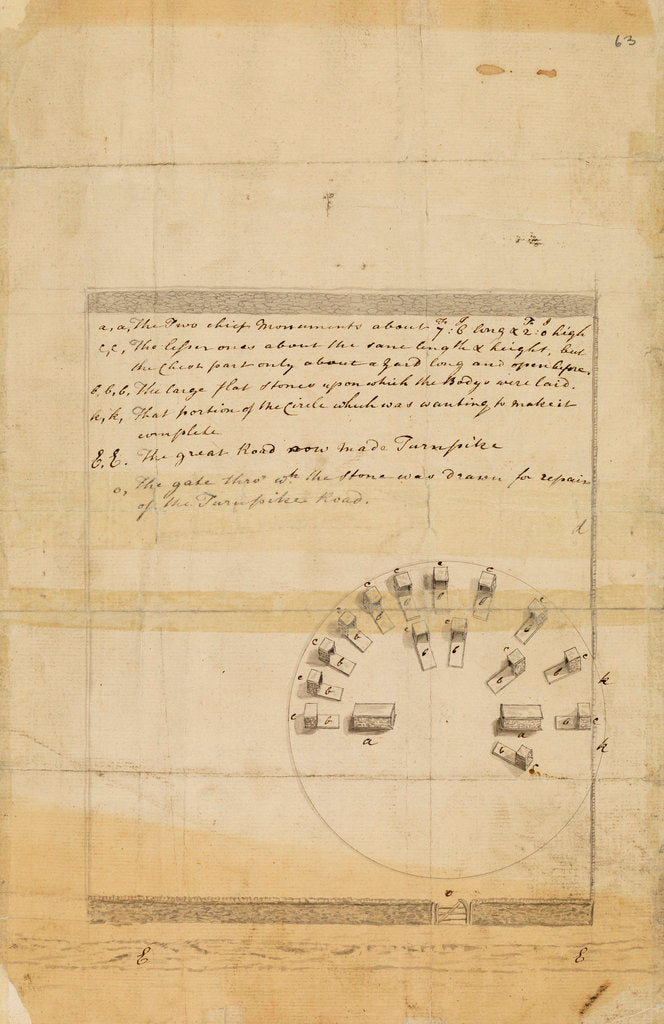 63
a, a, The Two chief Monuments about 7 F: 6 I long & 2 F: 0 I high
c, c, The lesser ones about the same length & height, but
the Chest part only about a Yard long and open before.
b, b, b, The large flat stones upon which the Bodys were laid.
k, k, That portion of the Circle which was wanting to make it
complete
E, E. The great Road now made Turnpike
o, The gate thro' wch. the Stone was Drawn for repair
of the Turnpike Road.
d
c c c c
c c
c b b b b b b c
b b b
c b b c
c b b k
c b a a a c
k
b c
o
E E